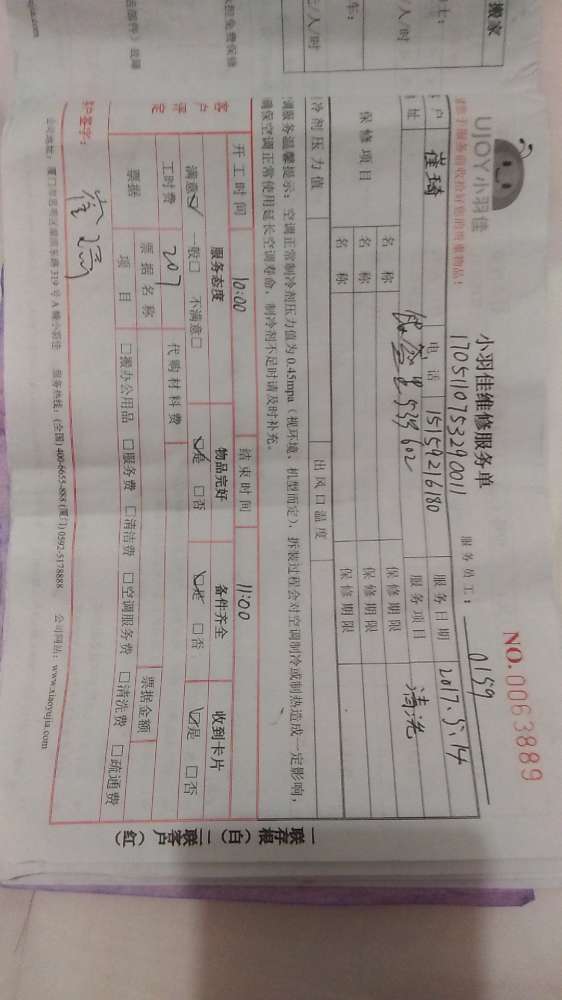 搬家
UJOY小羽佳
小羽佳维修服务单
NO.0063889
1705110753290011
服务员工： 0159
请于服务前收拾好您的贵重物品！
户 崔琦 电话 15159216180 服务日期 2017.5.14
址 602 服务项目 清洗
保修项目 名称 保修期限
名称 保修期限
名称 保修期限
冷剂压力值 出风口温度
调服务温馨提示：空调正常制冷剂压力值为0.45mpa（视环境、机型而定），拆装过程会对空调制冷或制热造成一定影响，
确保空调正常使用延长空调寿命，制冷剂不足时请及时补充。
开工时间 10:00 结束时间 11:00
客户评定 服务态度 物品完好 备件齐全 收到卡片
满意☑ 一般□ 不满意□ ☑是 □否 ☑是 □否 ☑是 □否
工时费 207 代购材料费
票据 票据名称 票据金额
项目 □搬办公用品 □服务费 □清洁费 □空调服务费 □清洗费 □疏通费
户签字：
公司地址：厦门市思明区 319号A幢小羽佳 服务热线：(全国) 400-6655-888 (厦门) 0592-5178888 公司网站：www.xiaoyujia.com
一联存根（白） 二联客户（红）